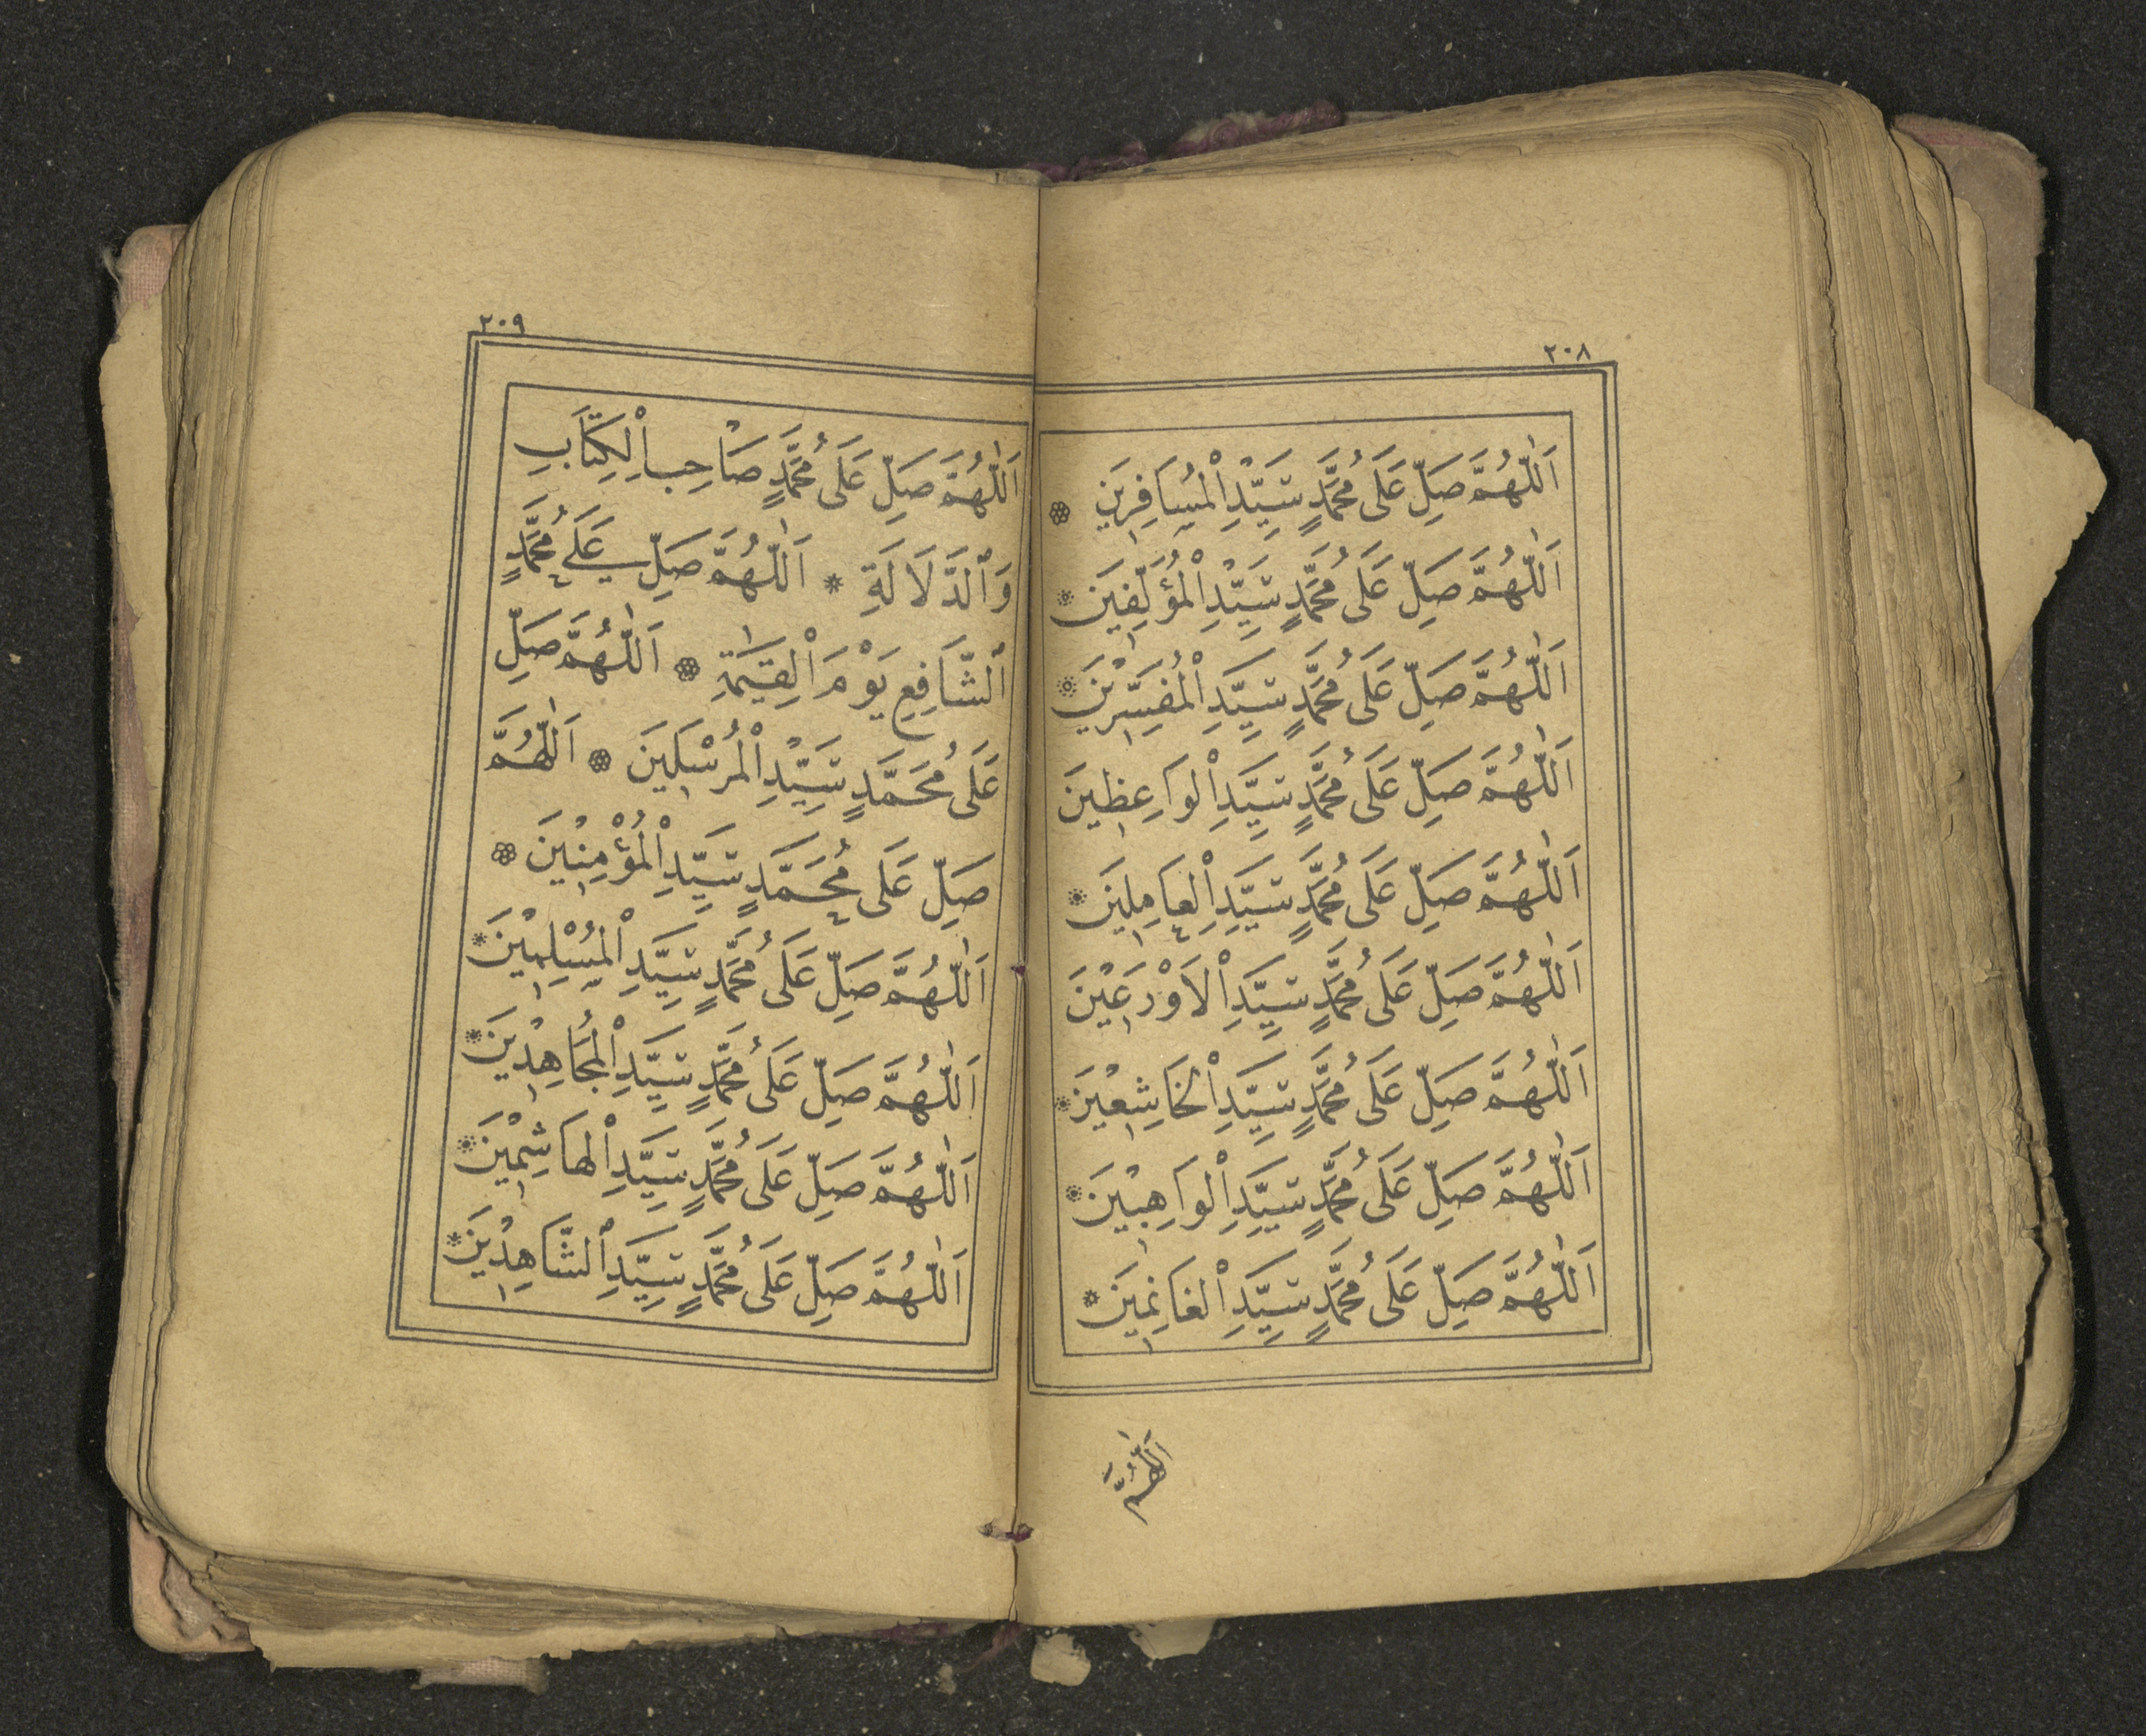 ٢٠٨
اَللّٰهُمَّ صَلِّ عَلَى مُحَمَّدٍ سَيِّدِ اْلمُسَافِرِينَ
اَللّٰهُمَّ صَلِّ عَلَى مُحَمَّدٍ سَيِّدِ اْلمُؤَلِّفِينَ
اَللّٰهُمَّ صَلِّ عَلَى مُحَمَّدٍ سَيِّدِ اْلمُفَسِّرِيْنَ
اَللّٰهُمَّ صَلِّ عَلَى مُحَمَّدٍ سَيِّدِ اْلوَاعِظِينَ
اَللّٰهُمَّ صَلِّ عَلَى مُحَمَّدٍ سَيِّدِ اْلعَامِلِينَ
اَللّٰهُمَّ صَلِّ عَلَى مُحَمَّدٍ سَيِّدِ اْلاَوْرَعِيْنَ
اَللّٰهُمَّ صَلِّ عَلَى مُحَمَّدٍ سَيِّدِ اْلخَاشِعِيْنَ
اَللّٰهُمَّ صَلِّ عَلَى مُحَمَّدٍ سَيِّدِ اْلوَاهِبِيْنَ
اَللّٰهُمَّ صَلِّ عَلَى مُحَمَّدٍ سَيِّدِ اْلغَانِمِينَ
اَللّٰهُمَّ
٢٠٩
اَللّٰهُمَّ صَلِّ عَلَى مُحَمَّدٍ صَاحِبِ اْلكِتَابِ
وَٱلدَّلَالَةِ * اَللّٰهُمَّ صَلِّ عَلَى مُحَمَّدٍ
ٱلشَّافِعِ يَوْمَ اْلقِيٰمَةِ * اَللّٰهُمَّ صَلِّ
عَلَى مُحَمَّدٍ سَيِّدِ اْلمُرْسَلِينَ * اَللّٰهُمَّ
صَلِّ عَلَى مُحَمَّدٍ سَيِّدِ اْلمُؤْمِنِيْنَ *
اَللّٰهُمَّ صَلِّ عَلَى مُحَمَّدٍ سَيِّدِ اْلمُسْلِمِيْنَ *
اَللّٰهُمَّ صَلِّ عَلَى مُحَمَّدٍ سَيِّدِ اْلمُجَاهِدِيْنَ *
اَللّٰهُمَّ صَلِّ عَلَى مُحَمَّدٍ سَيِّدِ اْلهَاشِمِيْنَ *
اَللّٰهُمَّ صَلِّ عَلَى مُحَمَّدٍ سَيِّدِ ٱلشَّاهِدِيْنَ *